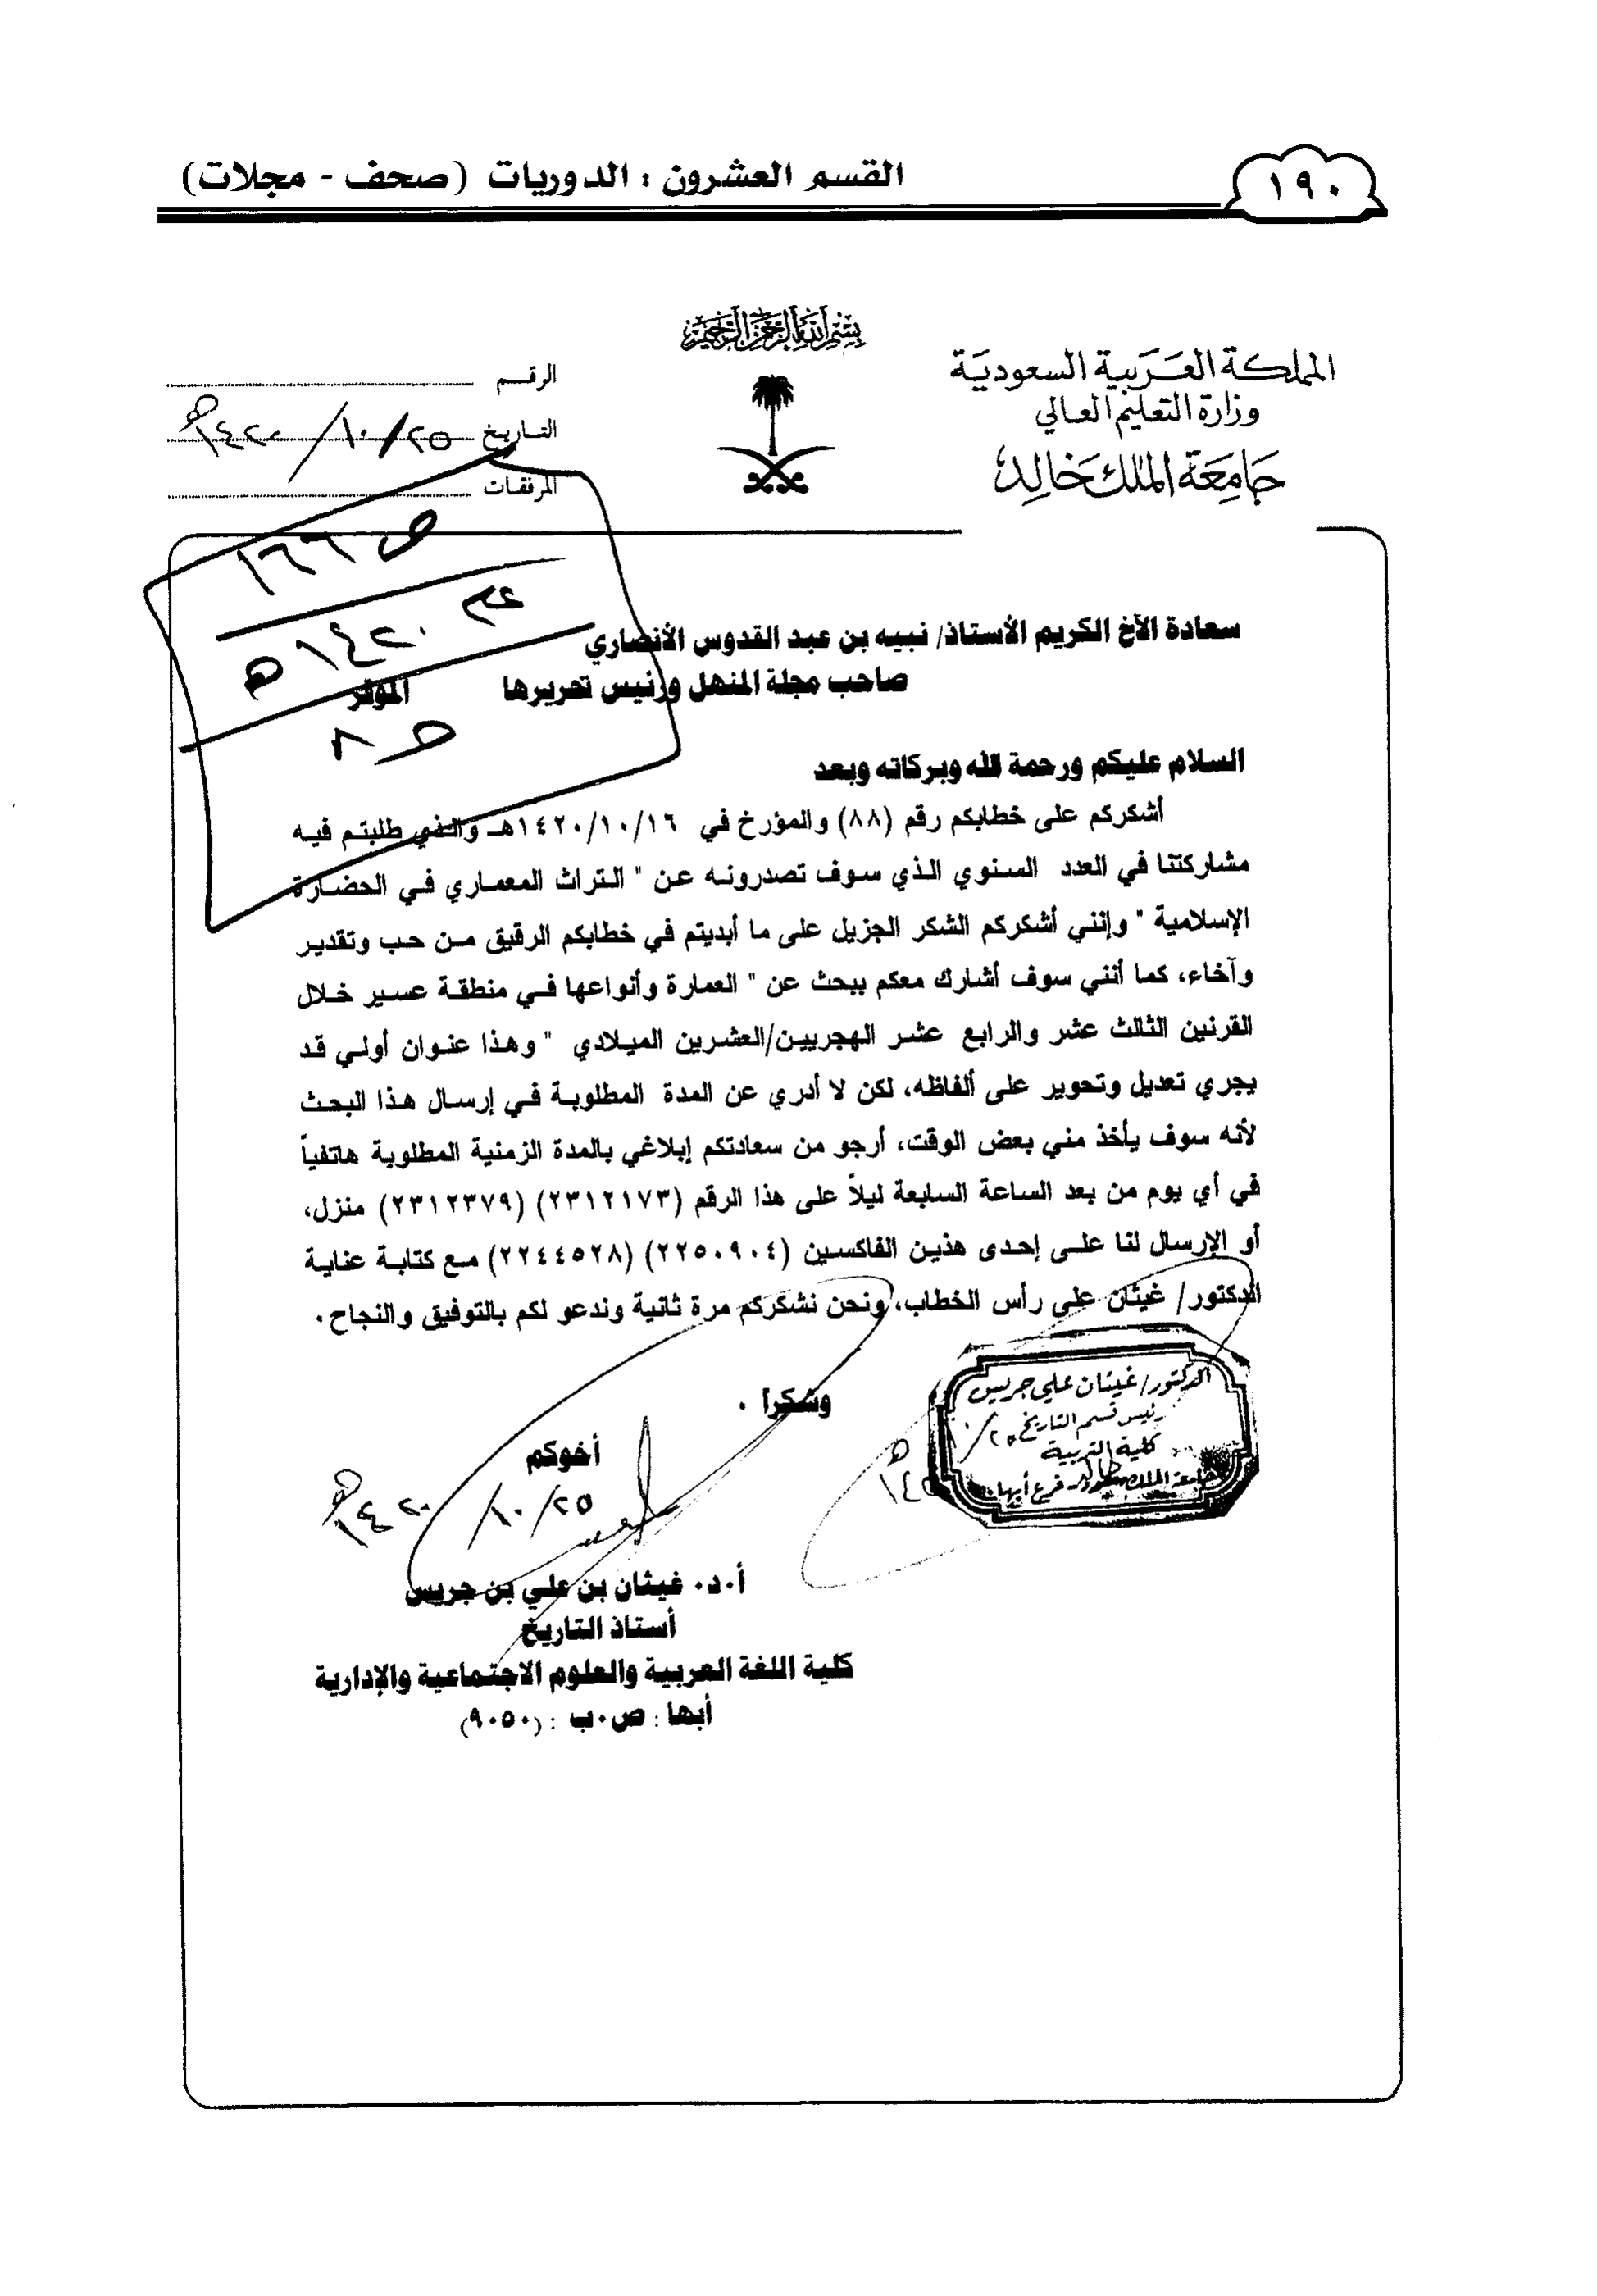 ١٩٠
القسم العشرون : الدوريات (صحف - مجلات)
بسم الله الرحمن الرحيم
المملكة العربية السعودية
وزارة التعليم العالي
جامعة الملك خالد
الرقم
التاريخ ٢٥/١٠/١٤٢٠هـ
المرفقات
ص ١٦٦
١٤٢٠هـ
ص ٨
سعادة الآخ الكريم الأستاذ/ نبيه بن عبد القدوس الأنصاري
صاحب مجلة المنهل ورئيس تحريرها الموقر
السلام عليكم ورحمة الله وبركاته وبعد
أشكركم على خطابكم رقم (٨٨) والمؤرخ في ١٤٢٠/١٠/١٦هـ والذي طلبتم فيه
مشاركتنا في العدد السنوي الذي سوف تصدرونه عن " التراث المعماري في الحضارة
الإسلامية " وإنني أشكركم الشكر الجزيل على ما أبديتم في خطابكم الرقيق من حب وتقدير
وآخاء، كما أنني سوف أشارك معكم ببحث عن " العمارة وأنواعها في منطقة عسير خلال
القرنين الثالث عشر والرابع عشر الهجريين/العشرين الميلادي " وهذا عنوان أولي قد
يجري تعديل وتحوير على ألفاظه، لكن لا أدري عن المدة المطلوبة في إرسال هذا البحث
لأنه سوف يأخذ مني بعض الوقت، أرجو من سعادتكم إبلاغي بالمدة الزمنية المطلوبة هاتفياً
في أي يوم من بعد الساعة السابعة ليلاً على هذا الرقم (٢٣١٢١٧٣) (٢٣١٢٣٧٩) منزل،
أو الإرسال لنا على إحدى هذين الفاكسين (٢٢٥٠٩٠٤) (٢٢٤٤٥٢٨) مع كتابة عناية
الدكتور/ غيثان على رأس الخطاب، ونحن نشكركم مرة ثانية وندعو لكم بالتوفيق والنجاح.
وشكراً .
الدكتور/ غيثان علي جريس
رئيس قسم التاريخ
كلية التربية
جامعة الملك خالد فرع أبها
أخوكم
٢٥/١٠/١٤٢٠هـ
أ.د. غيثان بن علي بن جريس
أستاذ التاريخ
كلية اللغة العربية والعلوم الاجتماعية والإدارية
أبها : ص.ب : (٩٠٥٠)